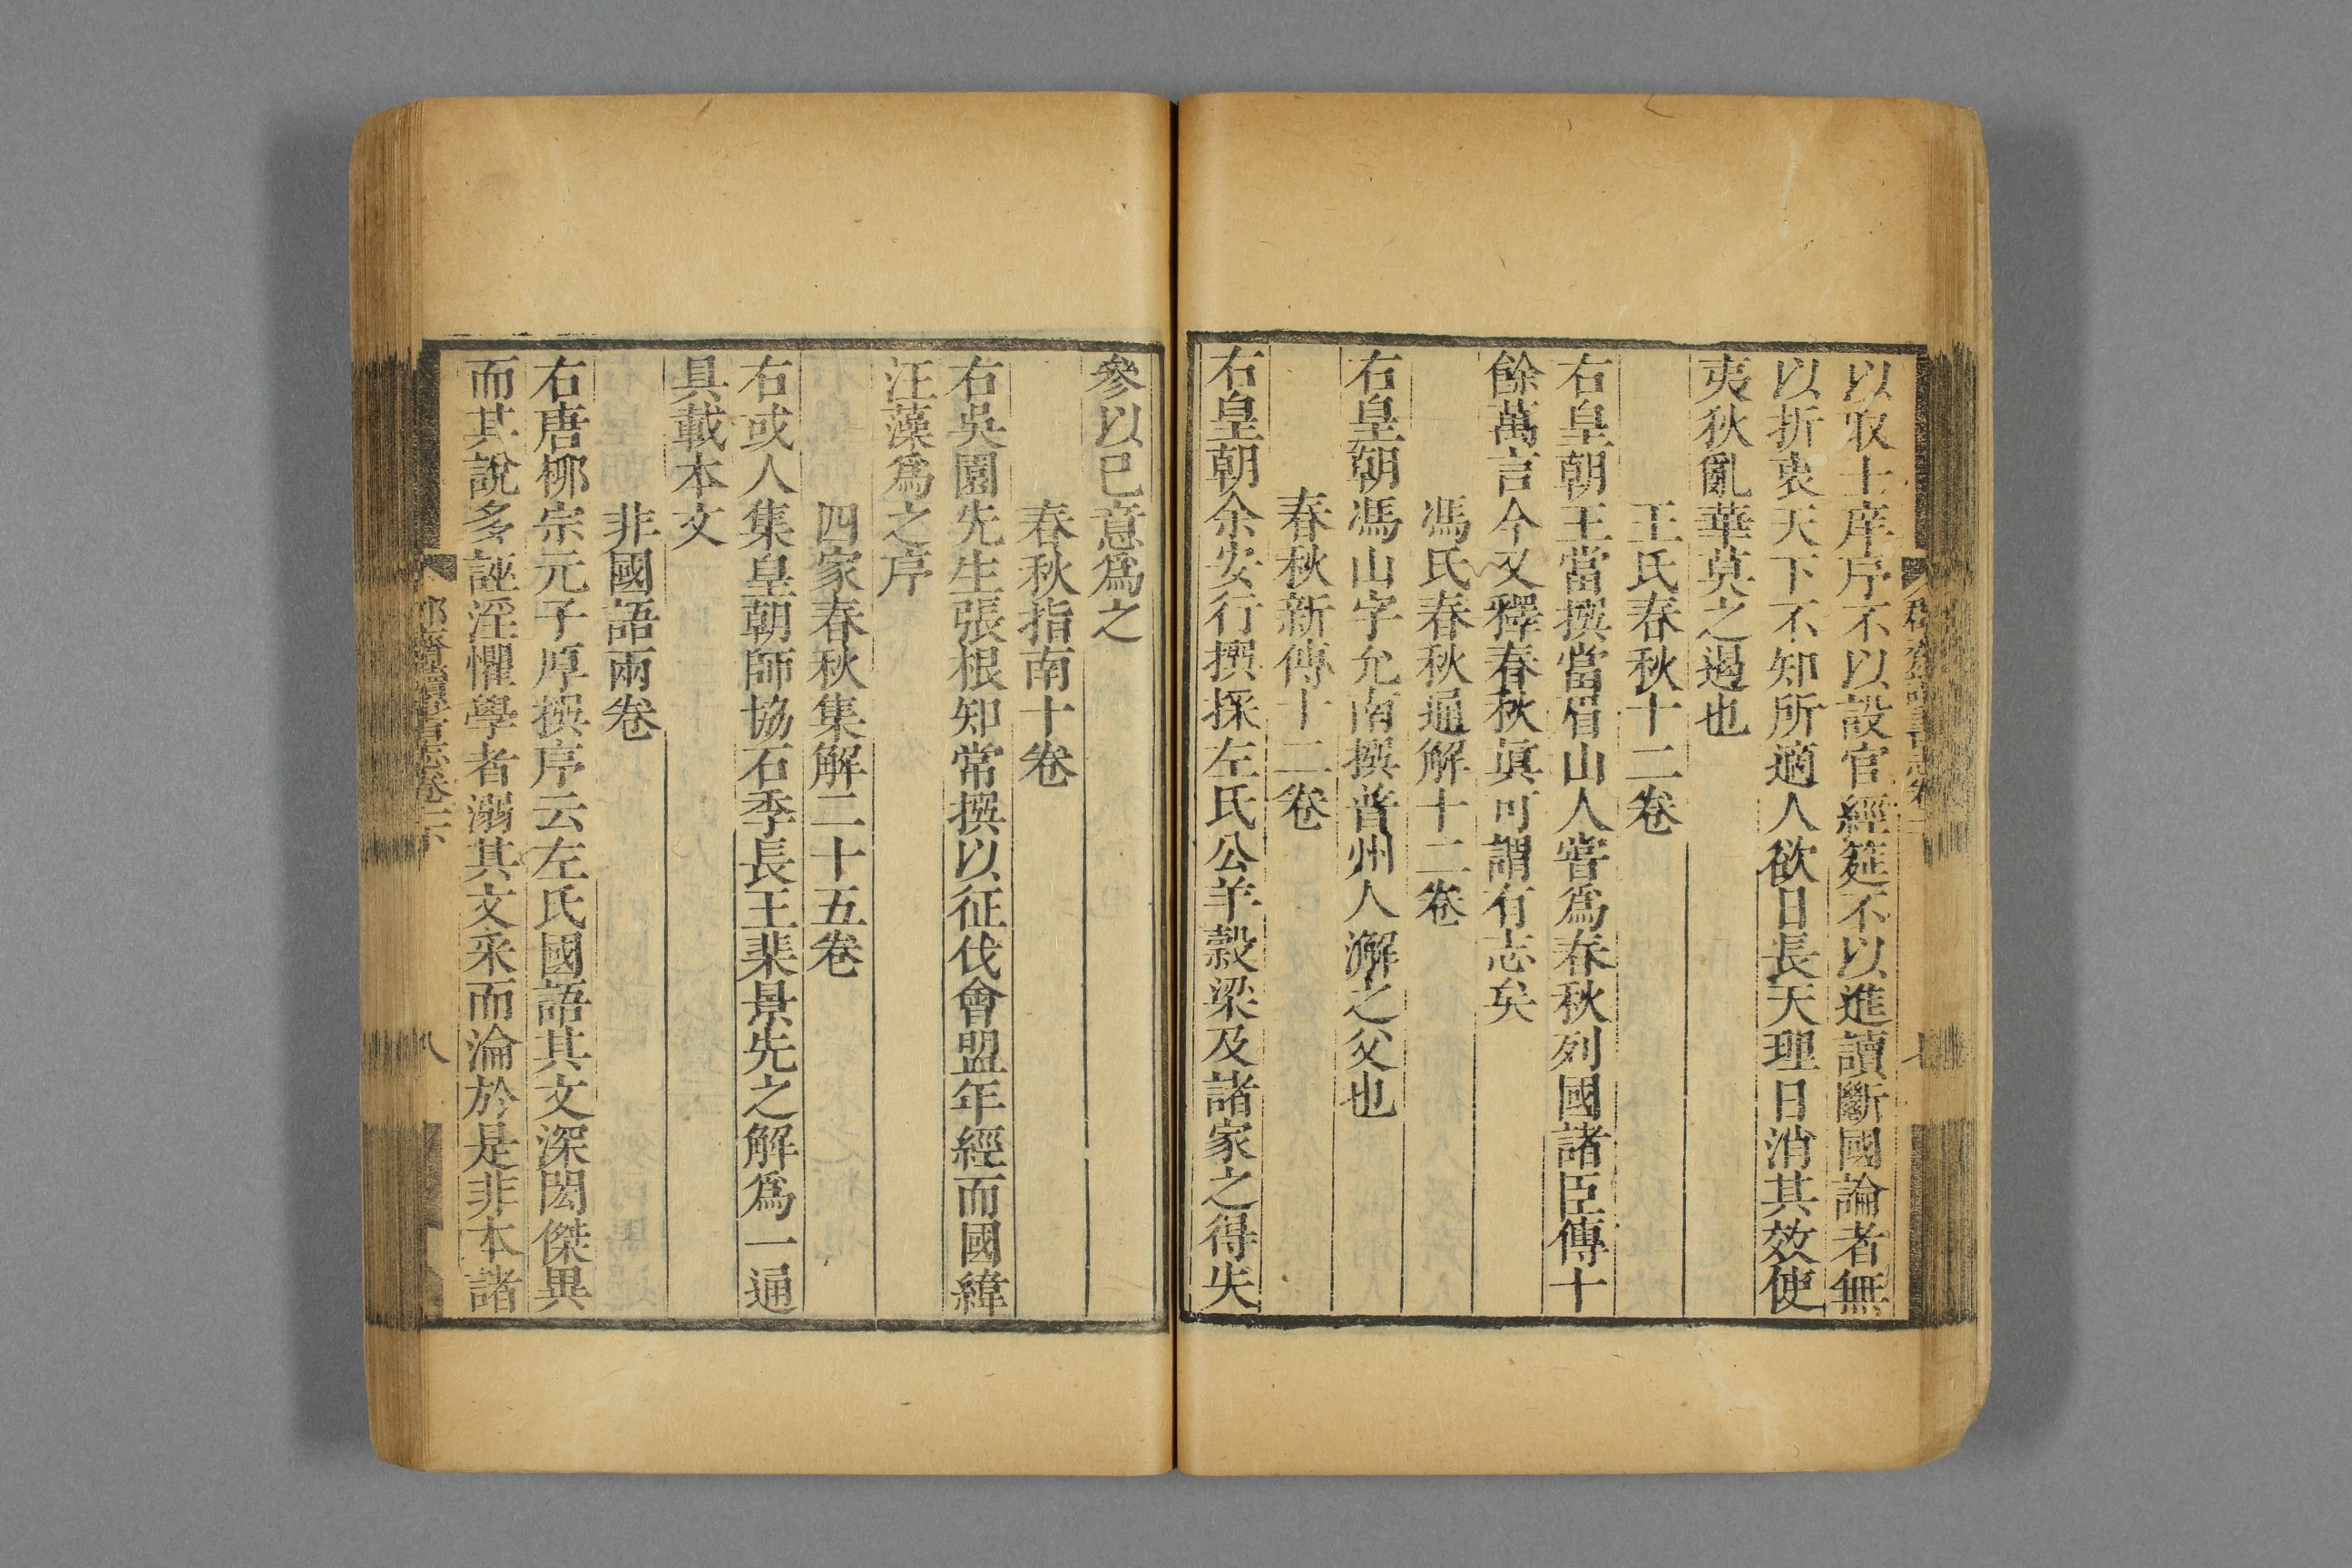 以取士庠序不以設官經筵不以進讀斷國論者無
以折衷天下不知所適人欲日長天理日消其效使
夷狄亂華莫之遏也
王氏春秋十二卷
右皇朝王當撰當眉山人嘗爲春秋列國諸臣傳十
餘萬言今又釋春秋眞可謂有志矣
馮氏春秋通解十二卷
右皇朝馮山字允南撰普州人澥之父也
春秋新傳十二卷
右皇朝余安行撰採左氏公羊穀梁及諸家之得失
參以已意爲之
春秋指南十卷
右吳園先生張根知常撰以征伐會盟年經而國緯
汪藻爲之序
四家春秋集解二十五卷
右或人集皇朝師協石季長王棐景先之解爲一通
具載本文
非國語兩卷
右唐栁宗元子厚撰序云左氏國語其文深閎傑異
而其說多誣淫懼學者溺其文采而淪於是非本諸
八